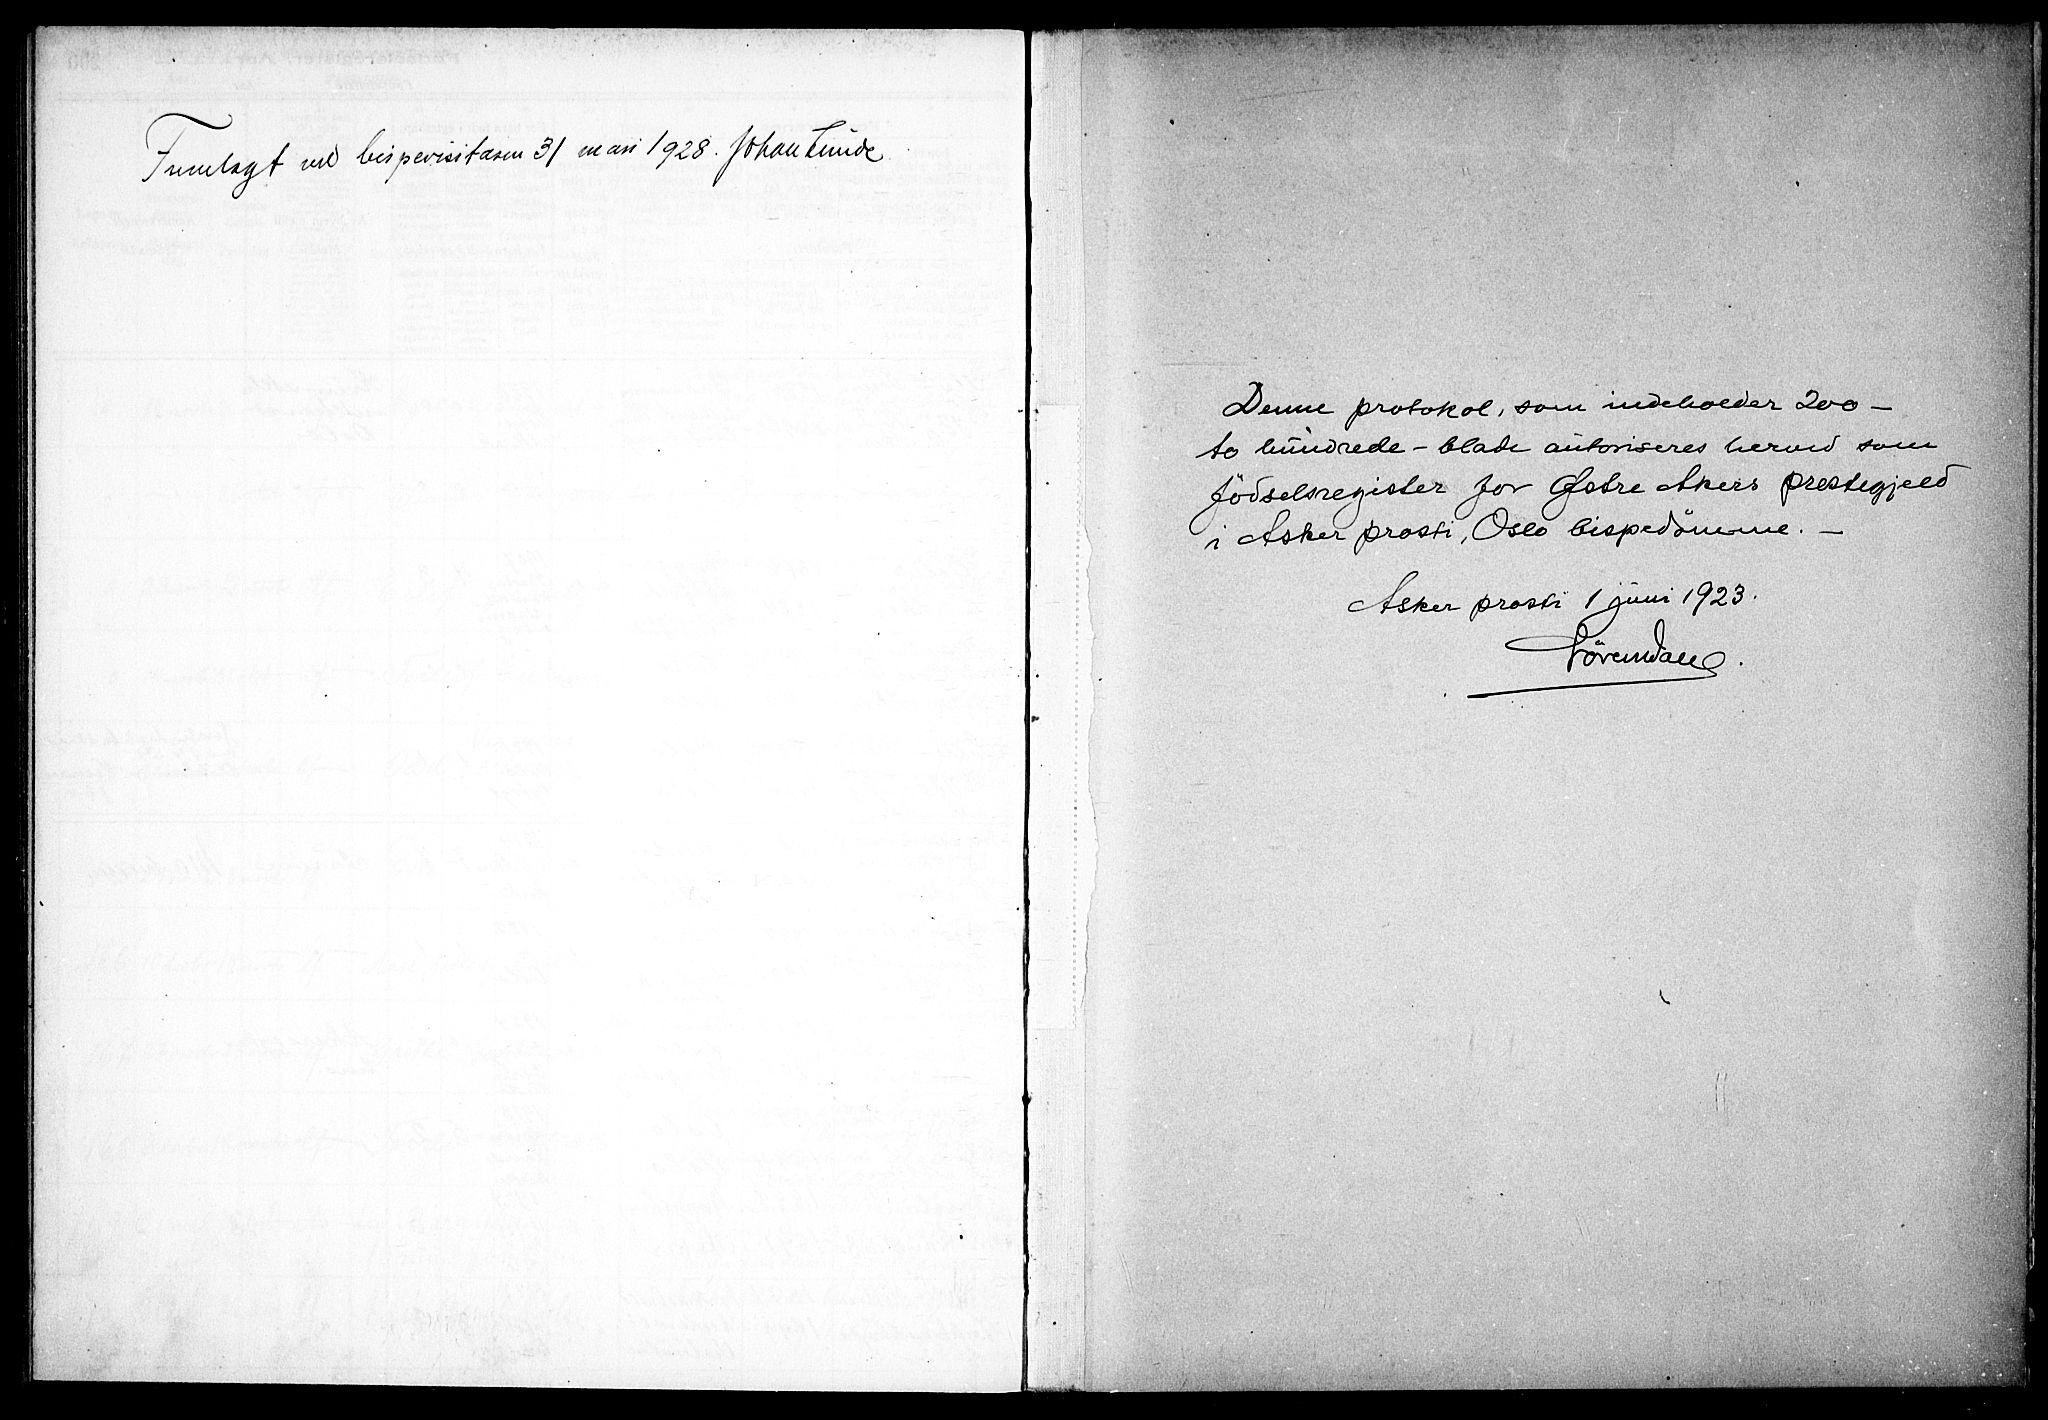 Fremlagt ved bispevisitasen 31 mars 1928. Johan Lunde
Denne protokol, som indeholder 200 –
to hundrede – blade autoriseres herved som
födselsregister for Østre Akers prestegjeld
i Asker prosti, Oslo bispedömme. –
Asker prosti 1 juni 1923.